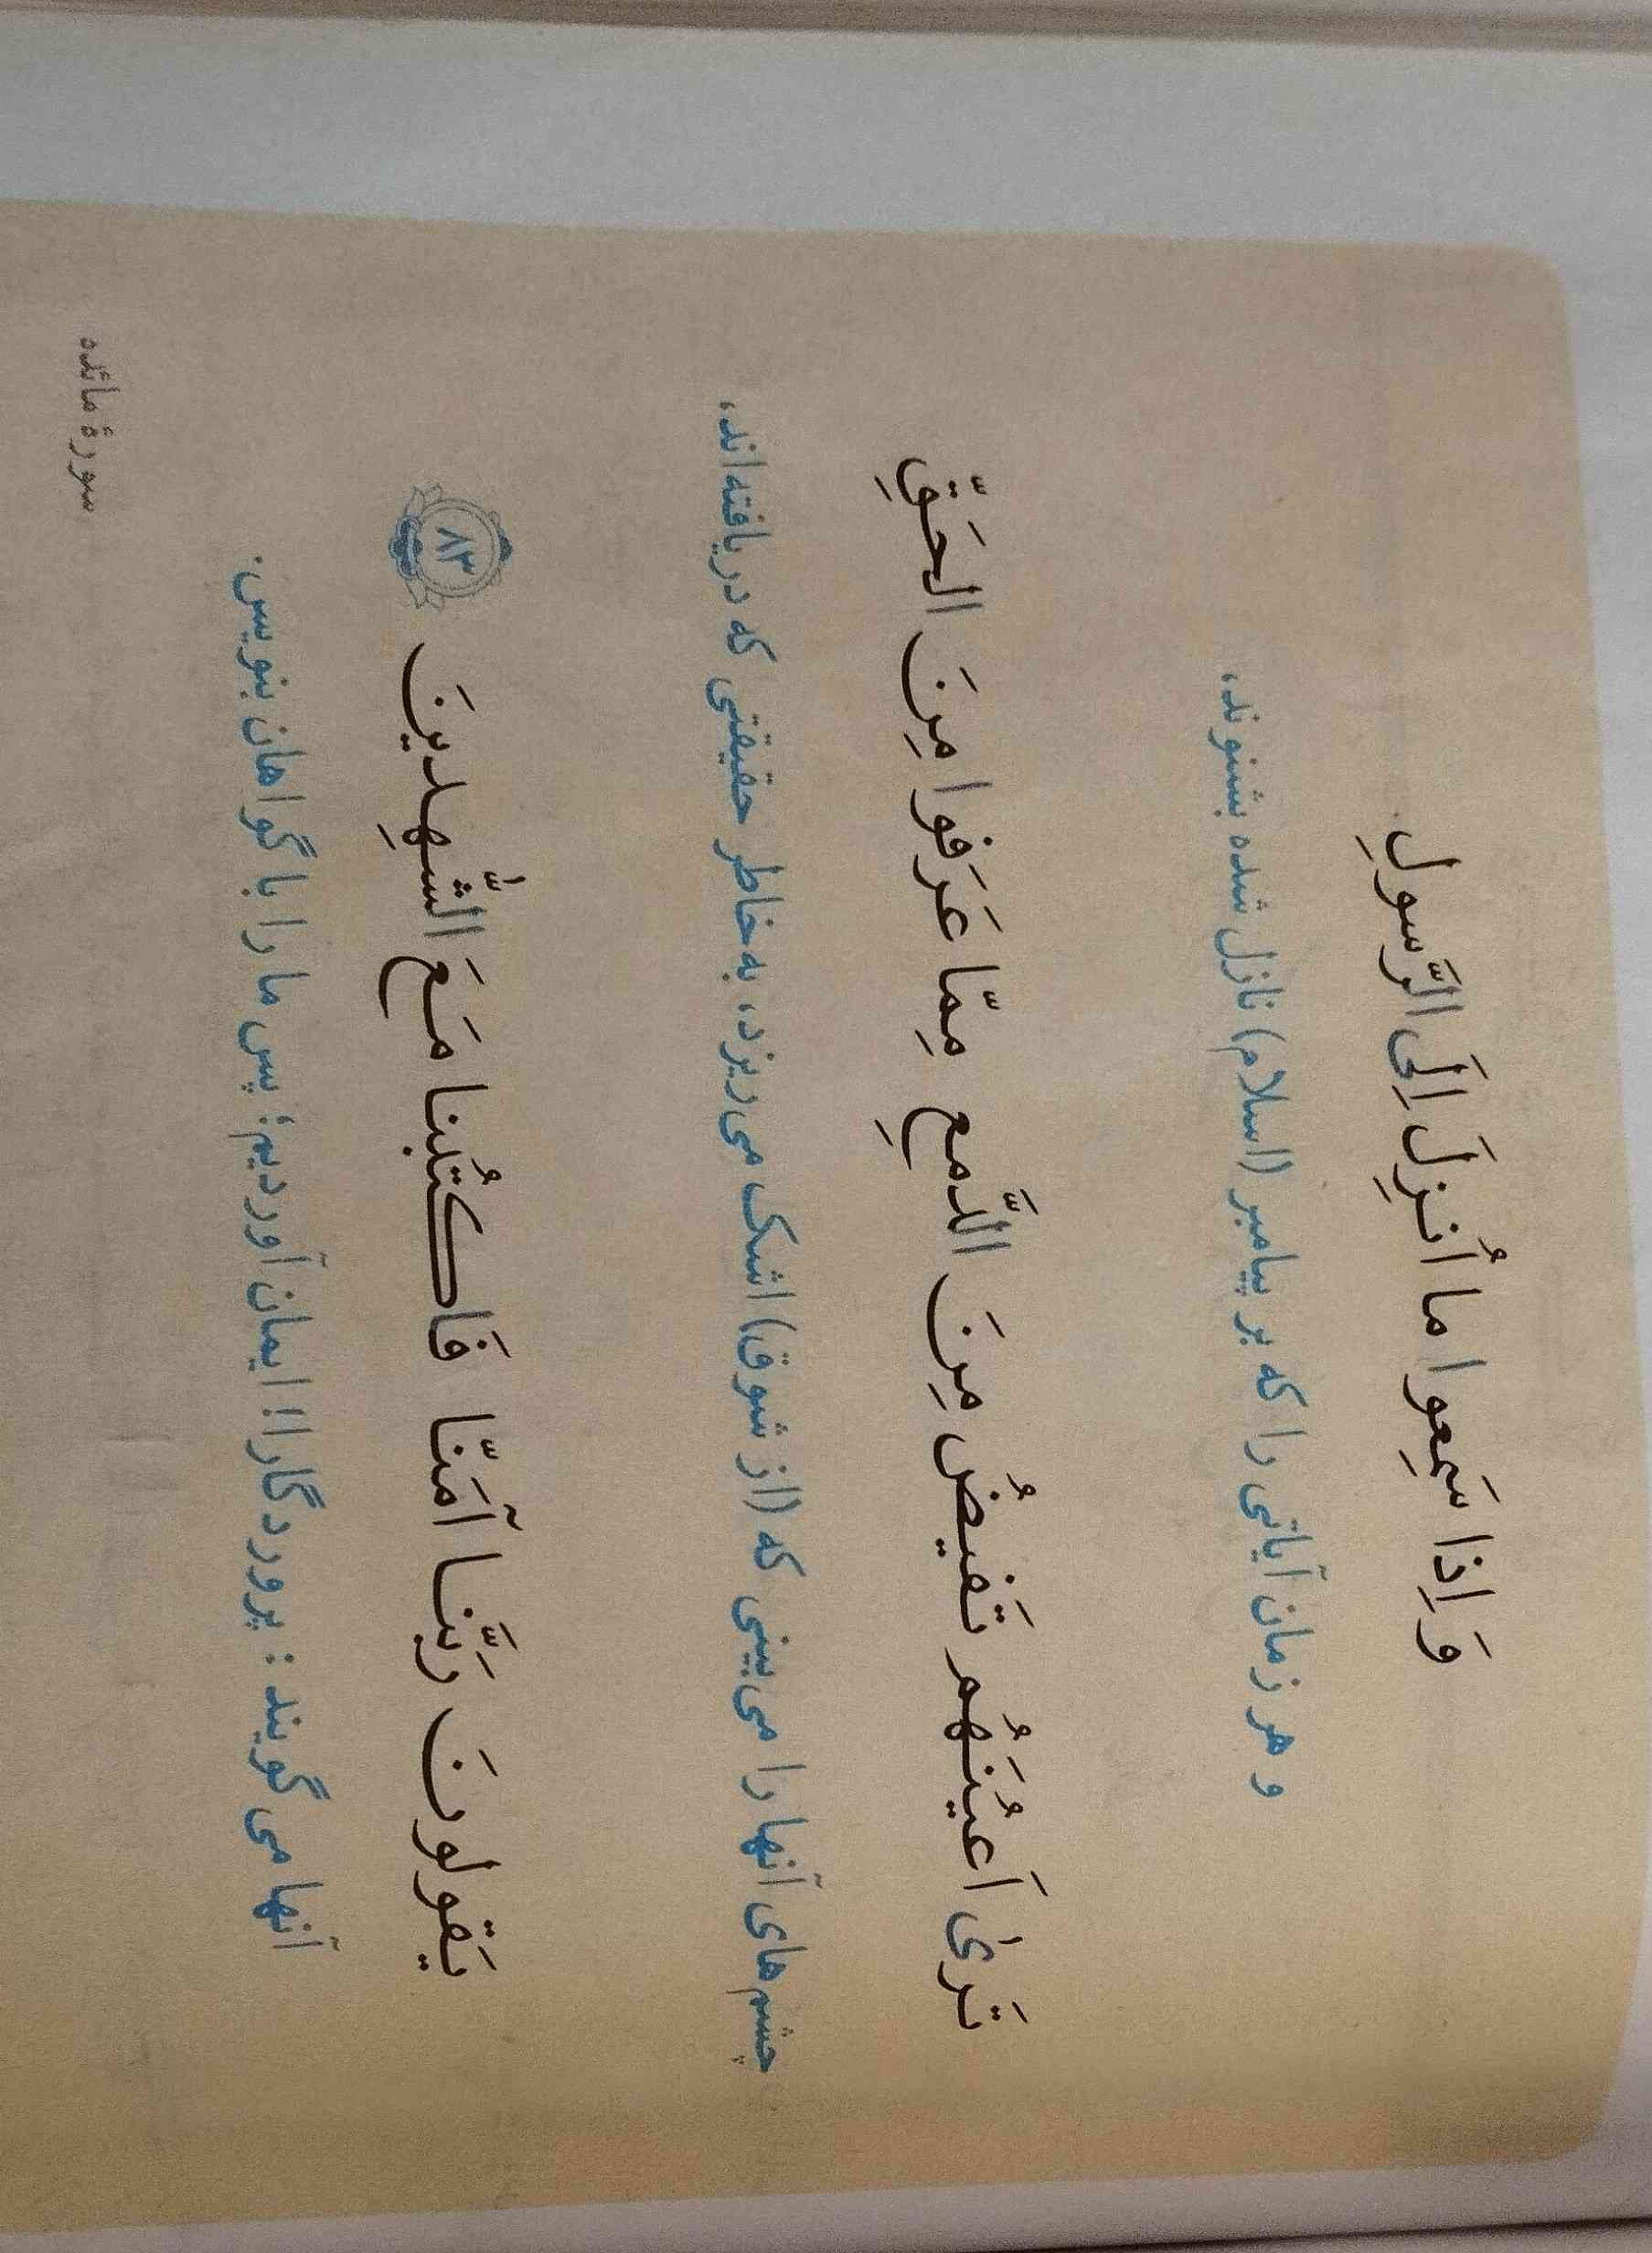 وَ اِذا سَمِعوا ما اُنزِلَ اِلَی الرَّسولِ
و هر زمان آیاتی را که بر پیامبر (اسلام) نازل شده بشنوند،
تَریٰ اَعیُنَهُم تَفیضُ مِنَ الدَّمعِ مِمّا عَرَفوا مِنَ الحَقِّ
چشم‌های آنها را می‌بینی که (از شوق) اشک می‌ریزد، به‌خاطر حقیقتی که دریافته‌اند،
یَقولونَ رَبَّنا آمَنّا فَاکتُبنا مَعَ الشّٰهِدینَ ۸۳
آنها می‌گویند: پروردگارا! ایمان آوردیم؛ پس ما را با گواهان بنویس.
سورهٔ مائده